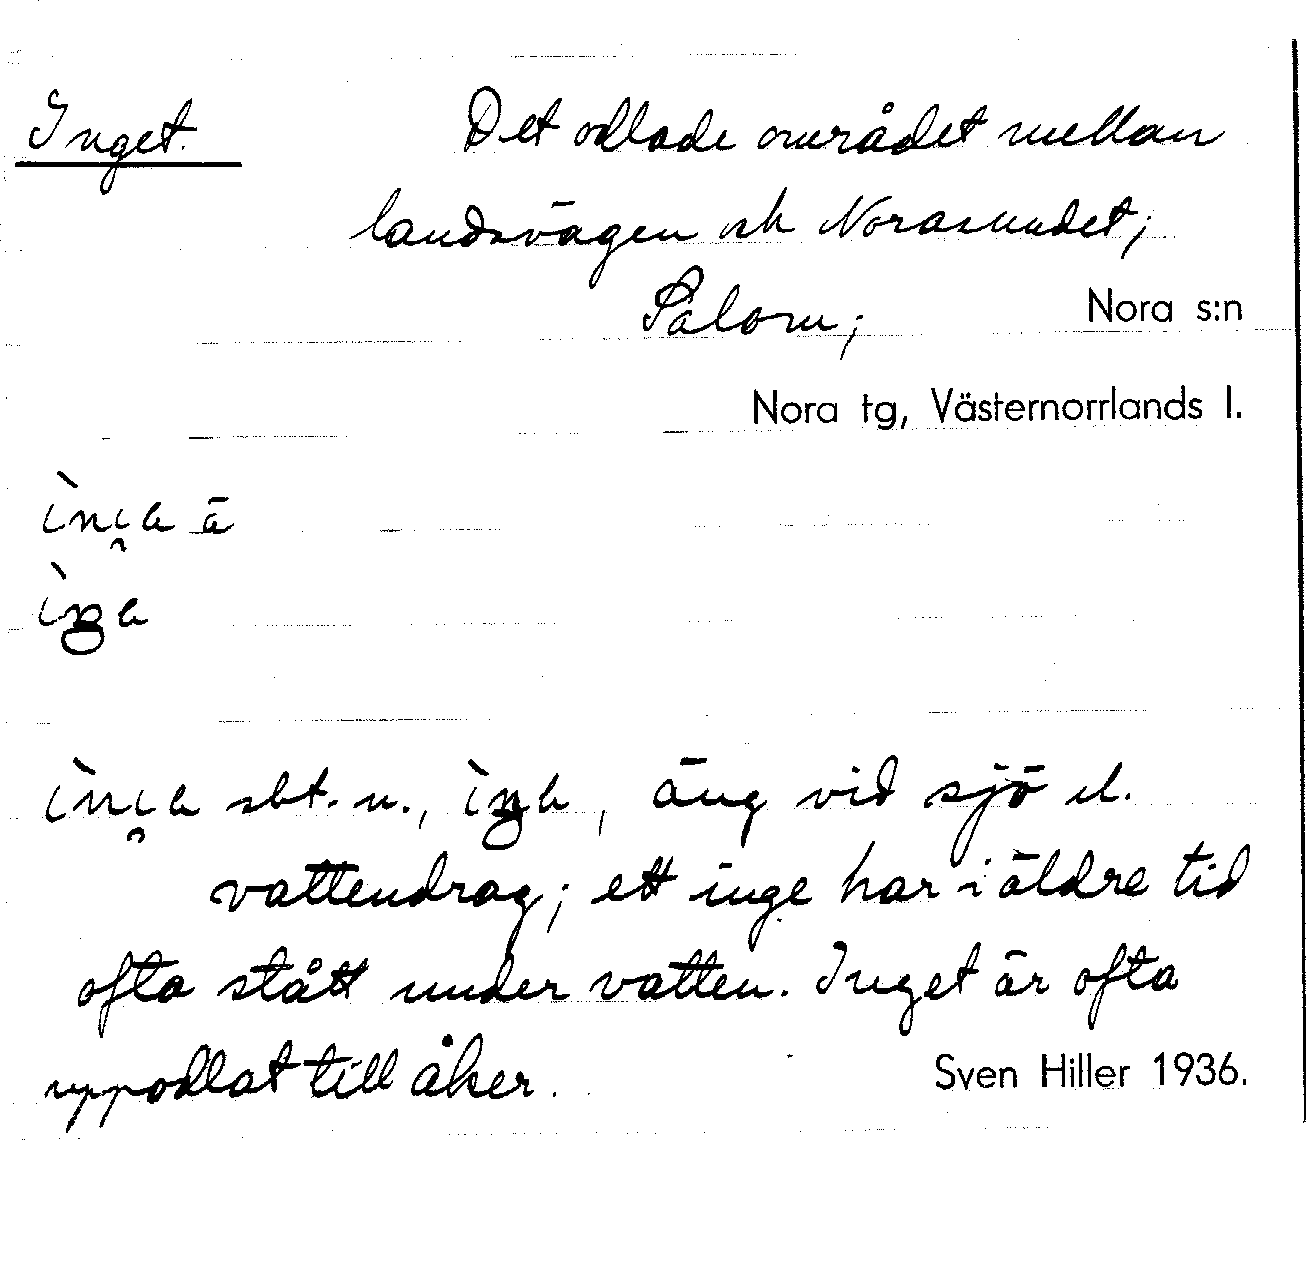 Inget. Det odlade området mellan
landsvägen och Norasundet;
Salom; Nora s:n
Nora tg, Västernorrlands l.
sbt. n., äng vid sjö el.
vattendrag; ett inge har i äldre tid
ofta stått under vatten. Inget är ofta
uppodlat till åker. Sven Hiller 1936.